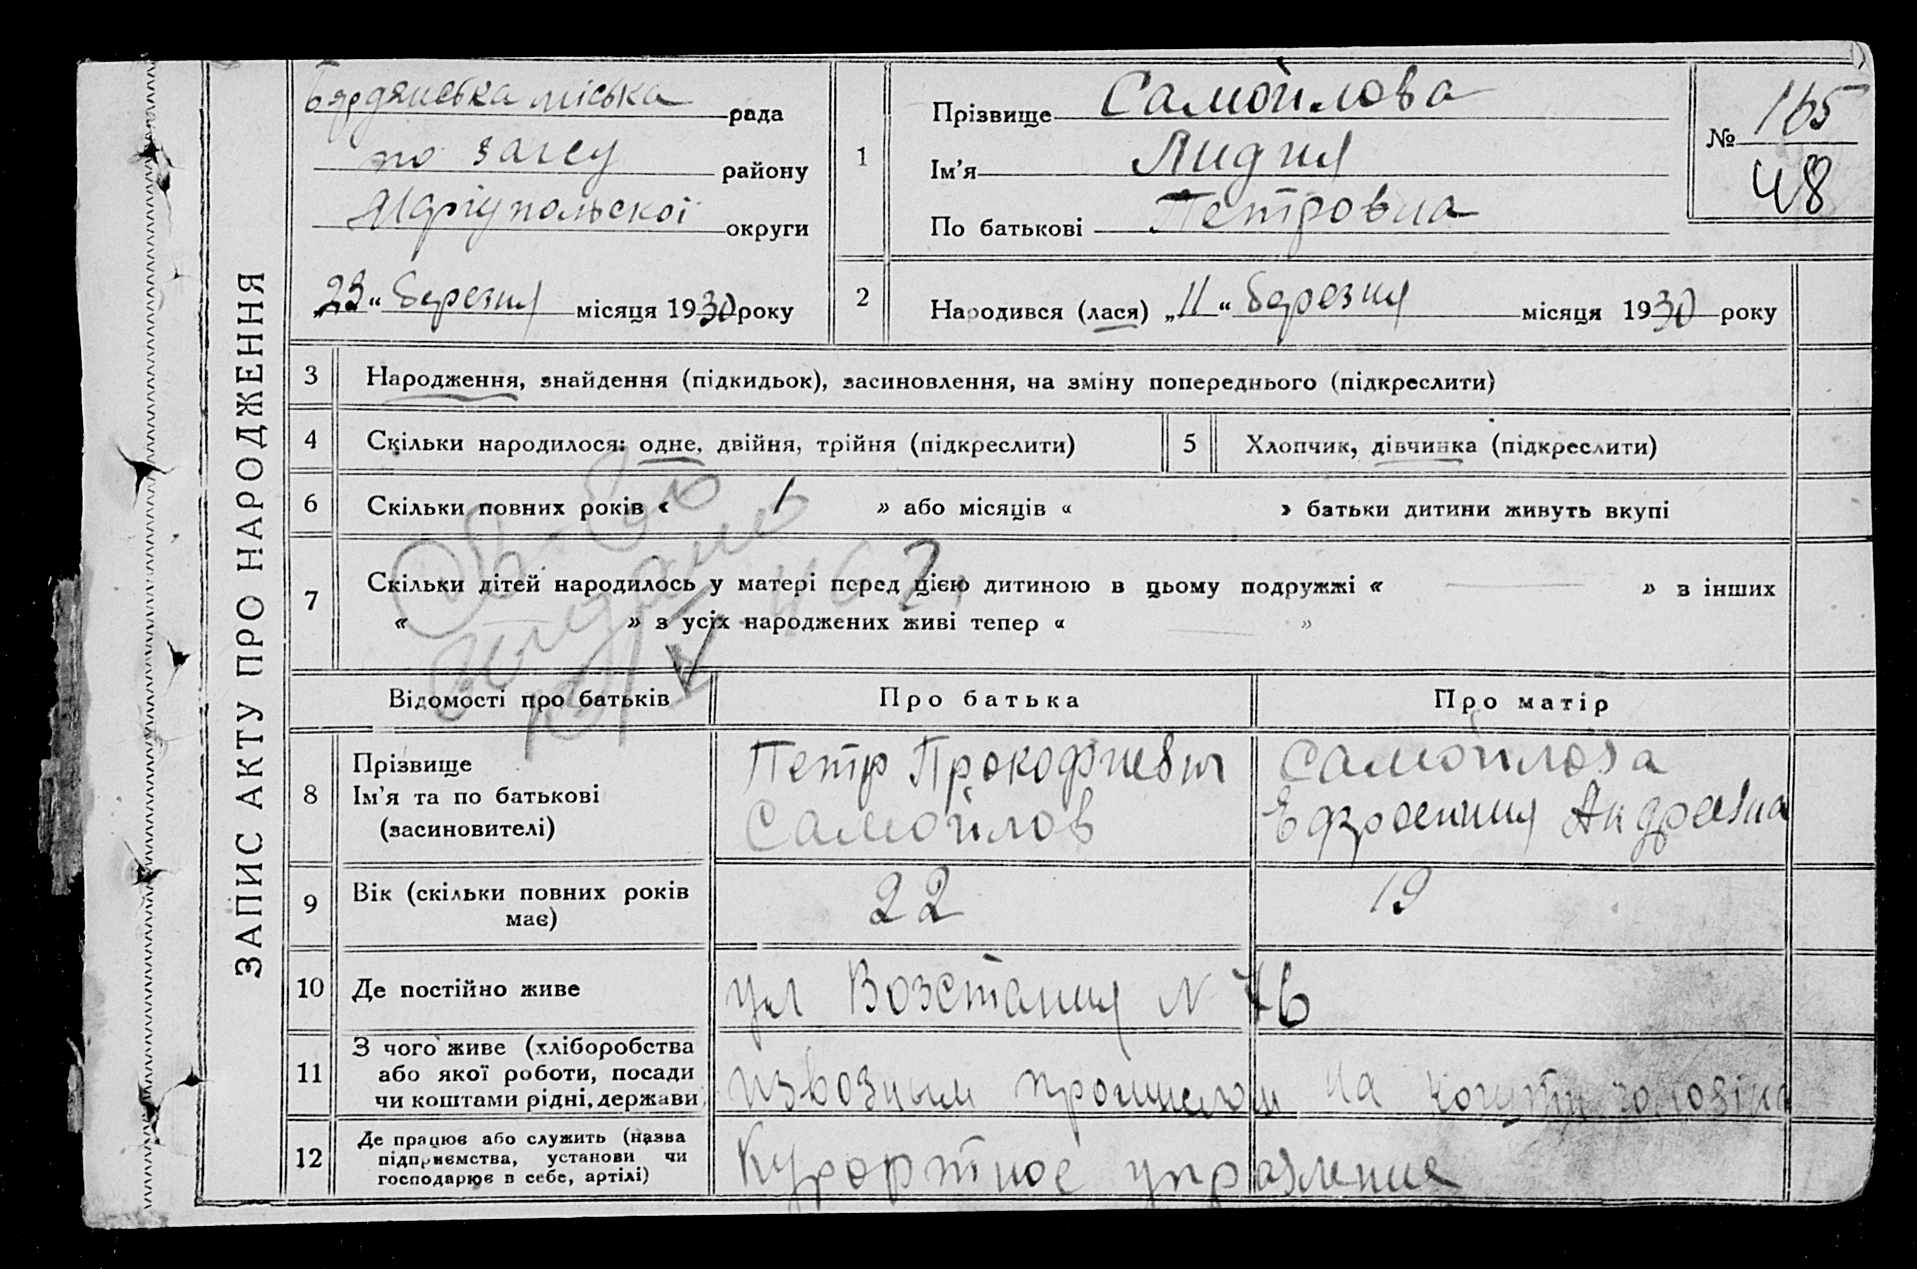 ЗАПИС АКТУ ПРО НАРОДЖЕННЯ
Бердянська міська рада
по загсу району
Маріупольскої округи
„23“ березня місяця 1930 року
1
Прізвище Самойлова
Ім'я Лидия
По батькові Петровна
№ 165
48
2
Народився (лася) „11“ березня місяця 1930 року
3 Народження, знайдення (підкидьок), засиновлення, на зміну попереднього (підкреслити)
4 Скільки народилося: одне, двійня, трійня (підкреслити)
5 Хлопчик, дівчинка (підкреслити)
6 Скільки повних років « 1 » або місяців « » батьки дитини живуть вкупі
7 Скільки дітей народилось у матері перед цією дитиною в цьому подружжі « — » в інших
« — » з усіх народжених живі тепер « — »
Відомості про батьків
Про батька
Про матір
8 Прізвище
Ім'я та по батькові
(засиновителі)
Петр Прокофиевич
Самойлов
Самойлова
Ефросиния Андреевна
9 Вік (скільки повних років
має)
22
19
10 Де постійно живе
ул Возстания N 76
11 З чого живе (хліборобства
або якої роботи, посади
чи коштами рідні, держави
извозным промислом
на кошти чоловіка
12 Де працює або служить (назва
підприємства, установи чи
господарює в себе, артілі)
Курортное управление